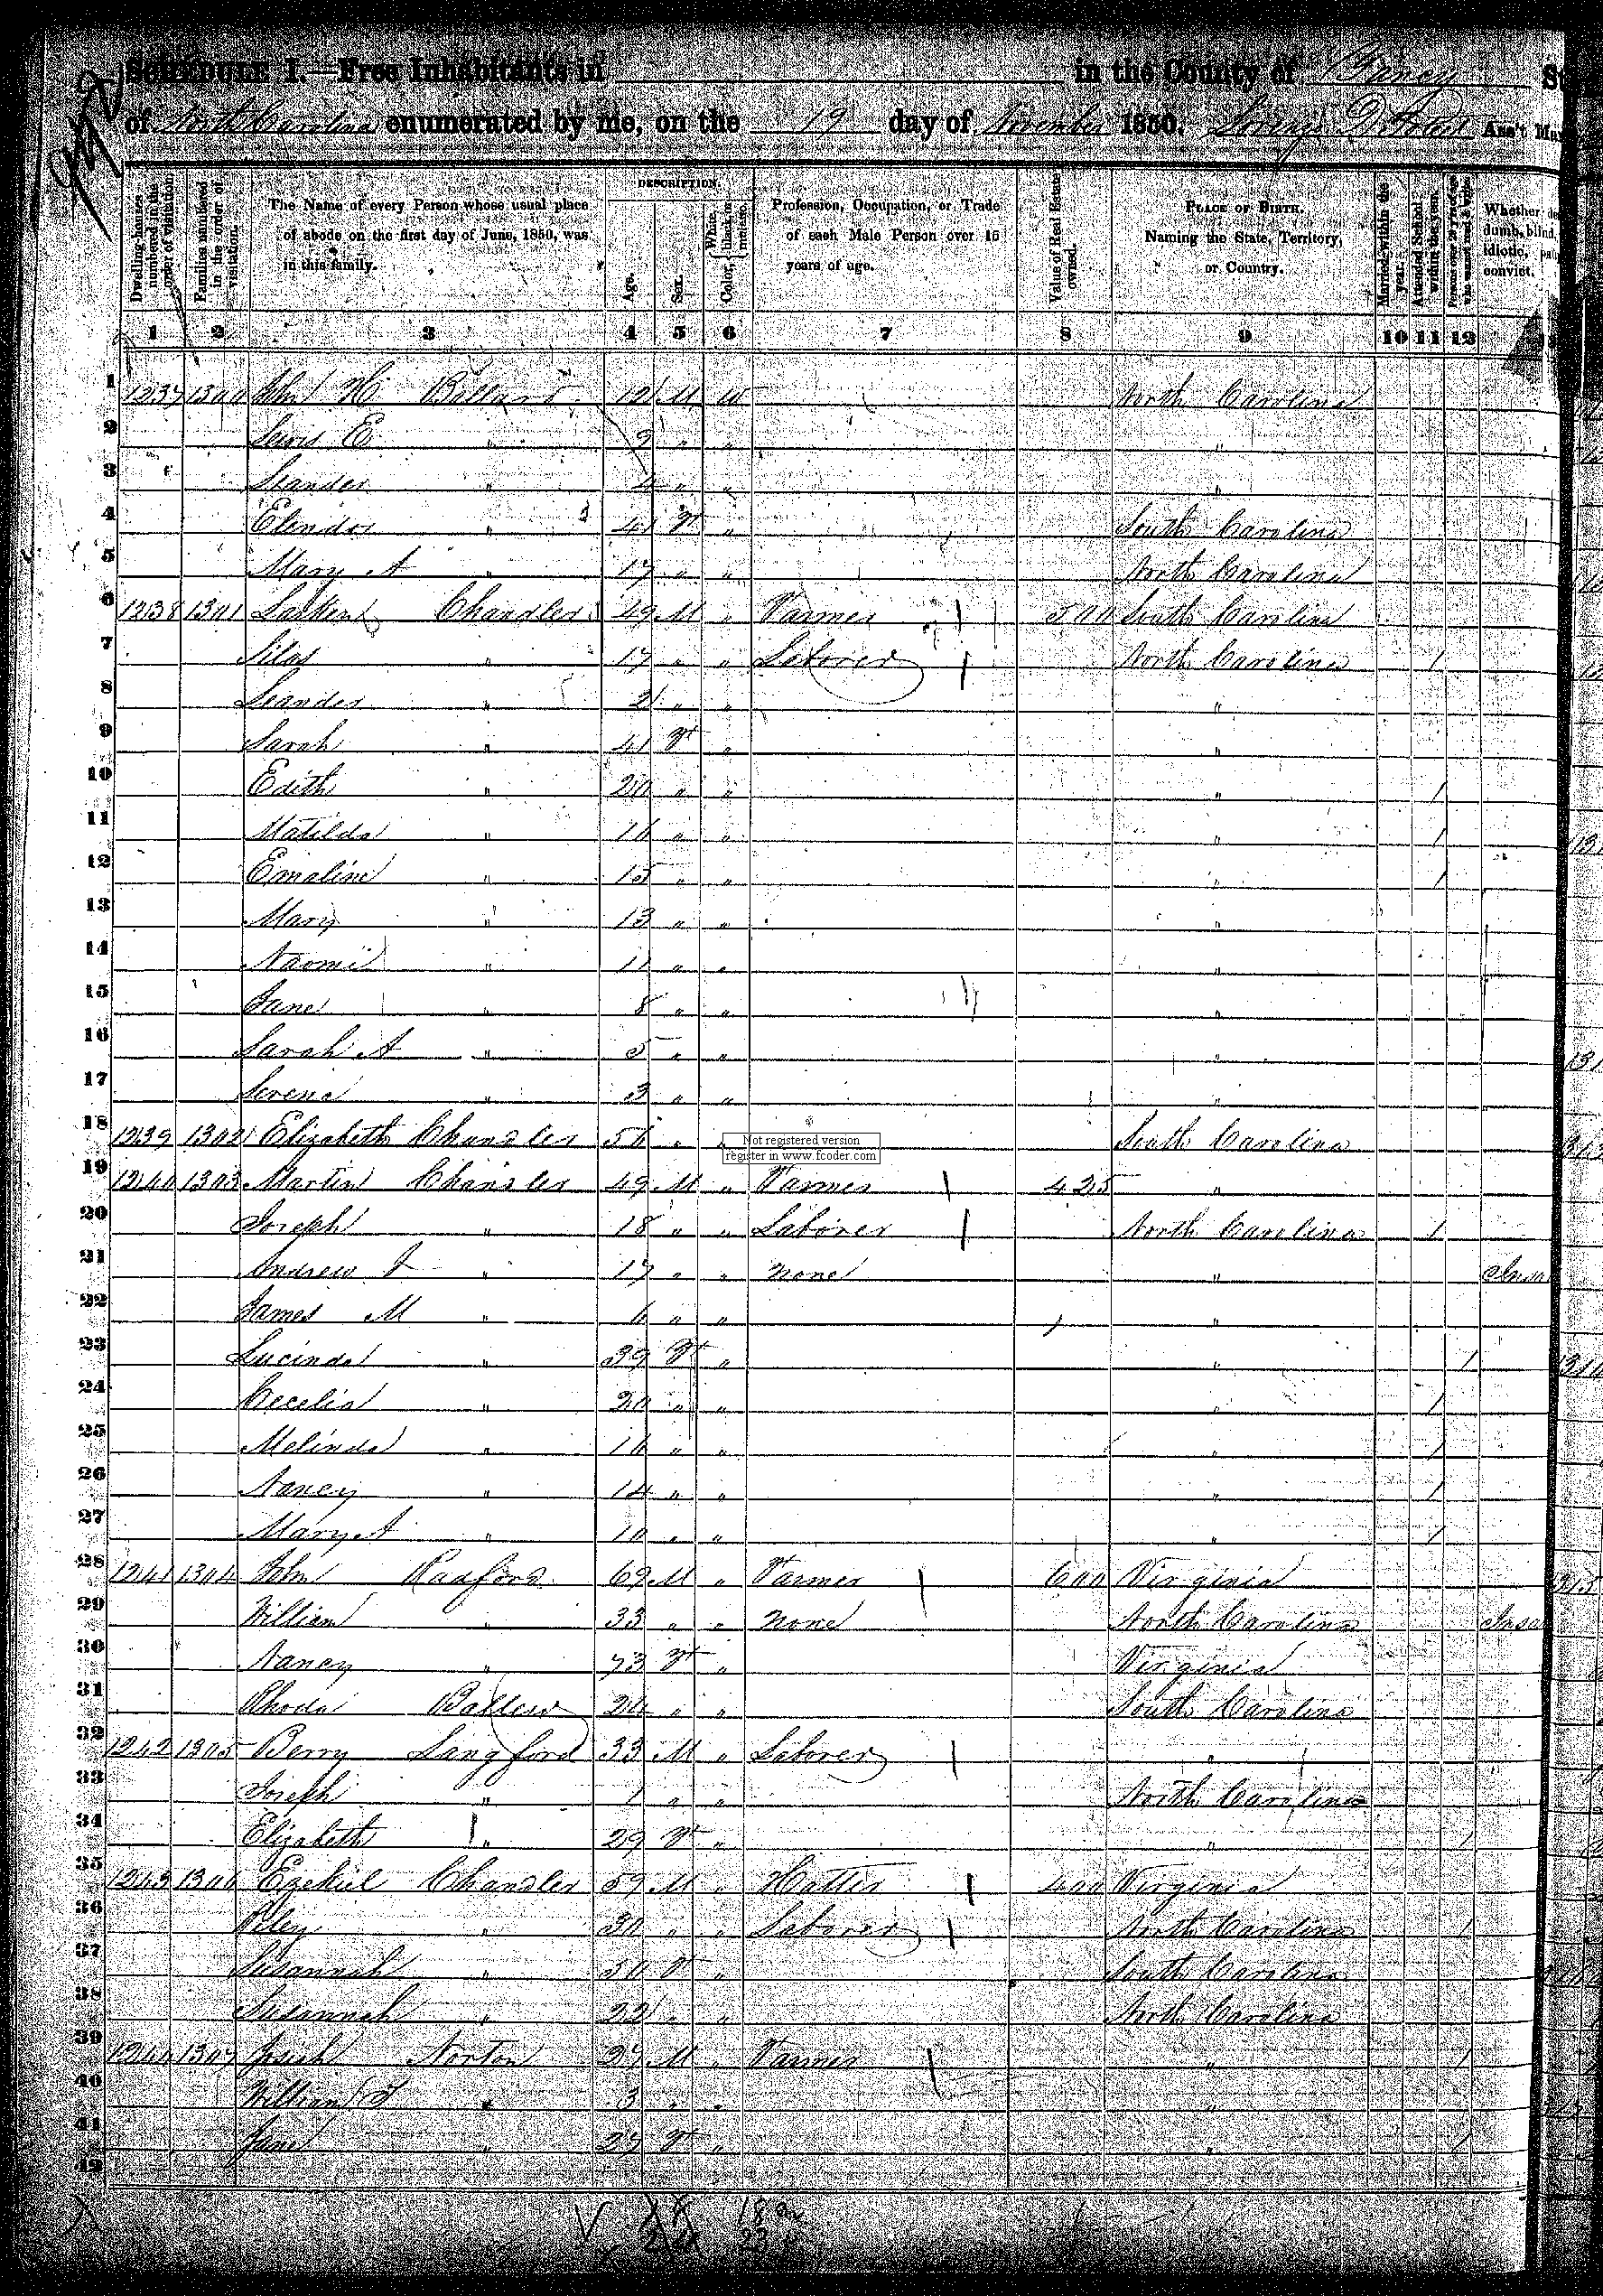 SCHEDULE I.—Free Inhabitants in in the County of Yancy
of North Carolina enumerated by me, on the 19 day of November 1850. Ass't
Dwelling-houses numbered in the order of visitation.
Families numbered in the order of visitation.
The Name of every Person whose usual place of abode on the first day of June, 1850, was in this family.
DESCRIPTION.
Age.
Sex.
Color, White, black, or mulatto.
Profession, Occupation, or Trade of each Male Person over 15 years of age.
Value of Real Estate owned.
PLACE OF BIRTH.
Naming the State, Territory, or Country.
Married within the year.
Attended School within the year.
Whether
dumb, blind,
idiotic,
convict.
1 2 3 4 5 6 7 8 9 10 11 12
1 1237 1300 John H. 12 M W North Carolina
2 Lewis E " 9 " " "
3 Leander " 4 " " "
4 " 41 F " South Carolina
5 Mary A " 17 " " North Carolina
6 1238 1301 Chandler 49 M " Farmer 500 South Carolina
7 Silas " 17 " " Laborer North Carolina 1
8 Leander " 2 " " "
9 Sarah " 41 F " "
10 Edith " 20 " " " 1
11 Matilda " 16 " " " 1
12 Emaline " 15 " " " 1
13 Mary " 13 " " "
14 Naomi " 11 " " "
15 Jane " 8 " " "
16 Sarah A " 5 " " "
17 Serena " 3 " " "
18 1239 1302 Elizabeth Chandler 56 " " South Carolina
Not registered version
register in www.fcoder.com
19 1240 1303 Martin Chandler 49 M " Farmer 425 "
20 Joseph " 18 " " Laborer North Carolina 1
21 Andrew J " 17 " " none "
22 James M " 6 " " "
23 Lucinda " 39 F " " 1
24 Cecelia " 20 " " " 1
25 Melinda " 16 " " " 1
26 Nancy " 14 " " " 1
27 Mary A " 10 " " " 1
28 1241 1304 John Radford 69 M " Farmer 600 Virginia
29 William " 33 " " none North Carolina
30 Nancy " 73 F " Virginia
31 Rhoda Ballew 24 " " South Carolina
32 1242 1305 Berry Langford 33 M " Laborer "
33 Joseph " 1 " " North Carolina
34 Elizabeth " 29 F " " 1
35 1243 1306 Ezekiel Chandler 59 M " Hatter 400 Virginia
36 Riley " 30 " " Laborer North Carolina 1
37 Susannah " 50 F " South Carolina
38 Susannah " 22 " " North Carolina
39 1244 1307 Josiah Norton 27 M " Farmer " 1
40 William " 3 " " "
41 Jane " 27 F " " 1
42